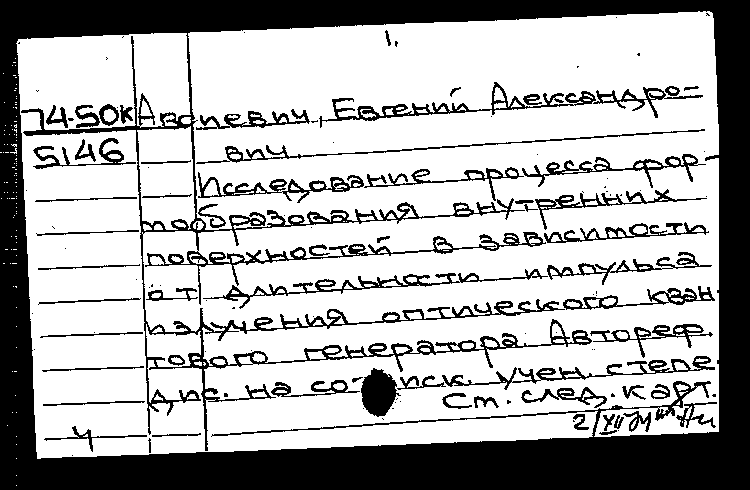 1.
74-50к Авсиевич, Евгений Александро-
5146 вич.
Исследование процесса фор-
мообразования внутренних
поверхностей в зависимости
от длительности импульса
излучения оптического кван-
тового генератора. Автореф.
дис. на соиск. учен. степе
См. след. карт.
ч